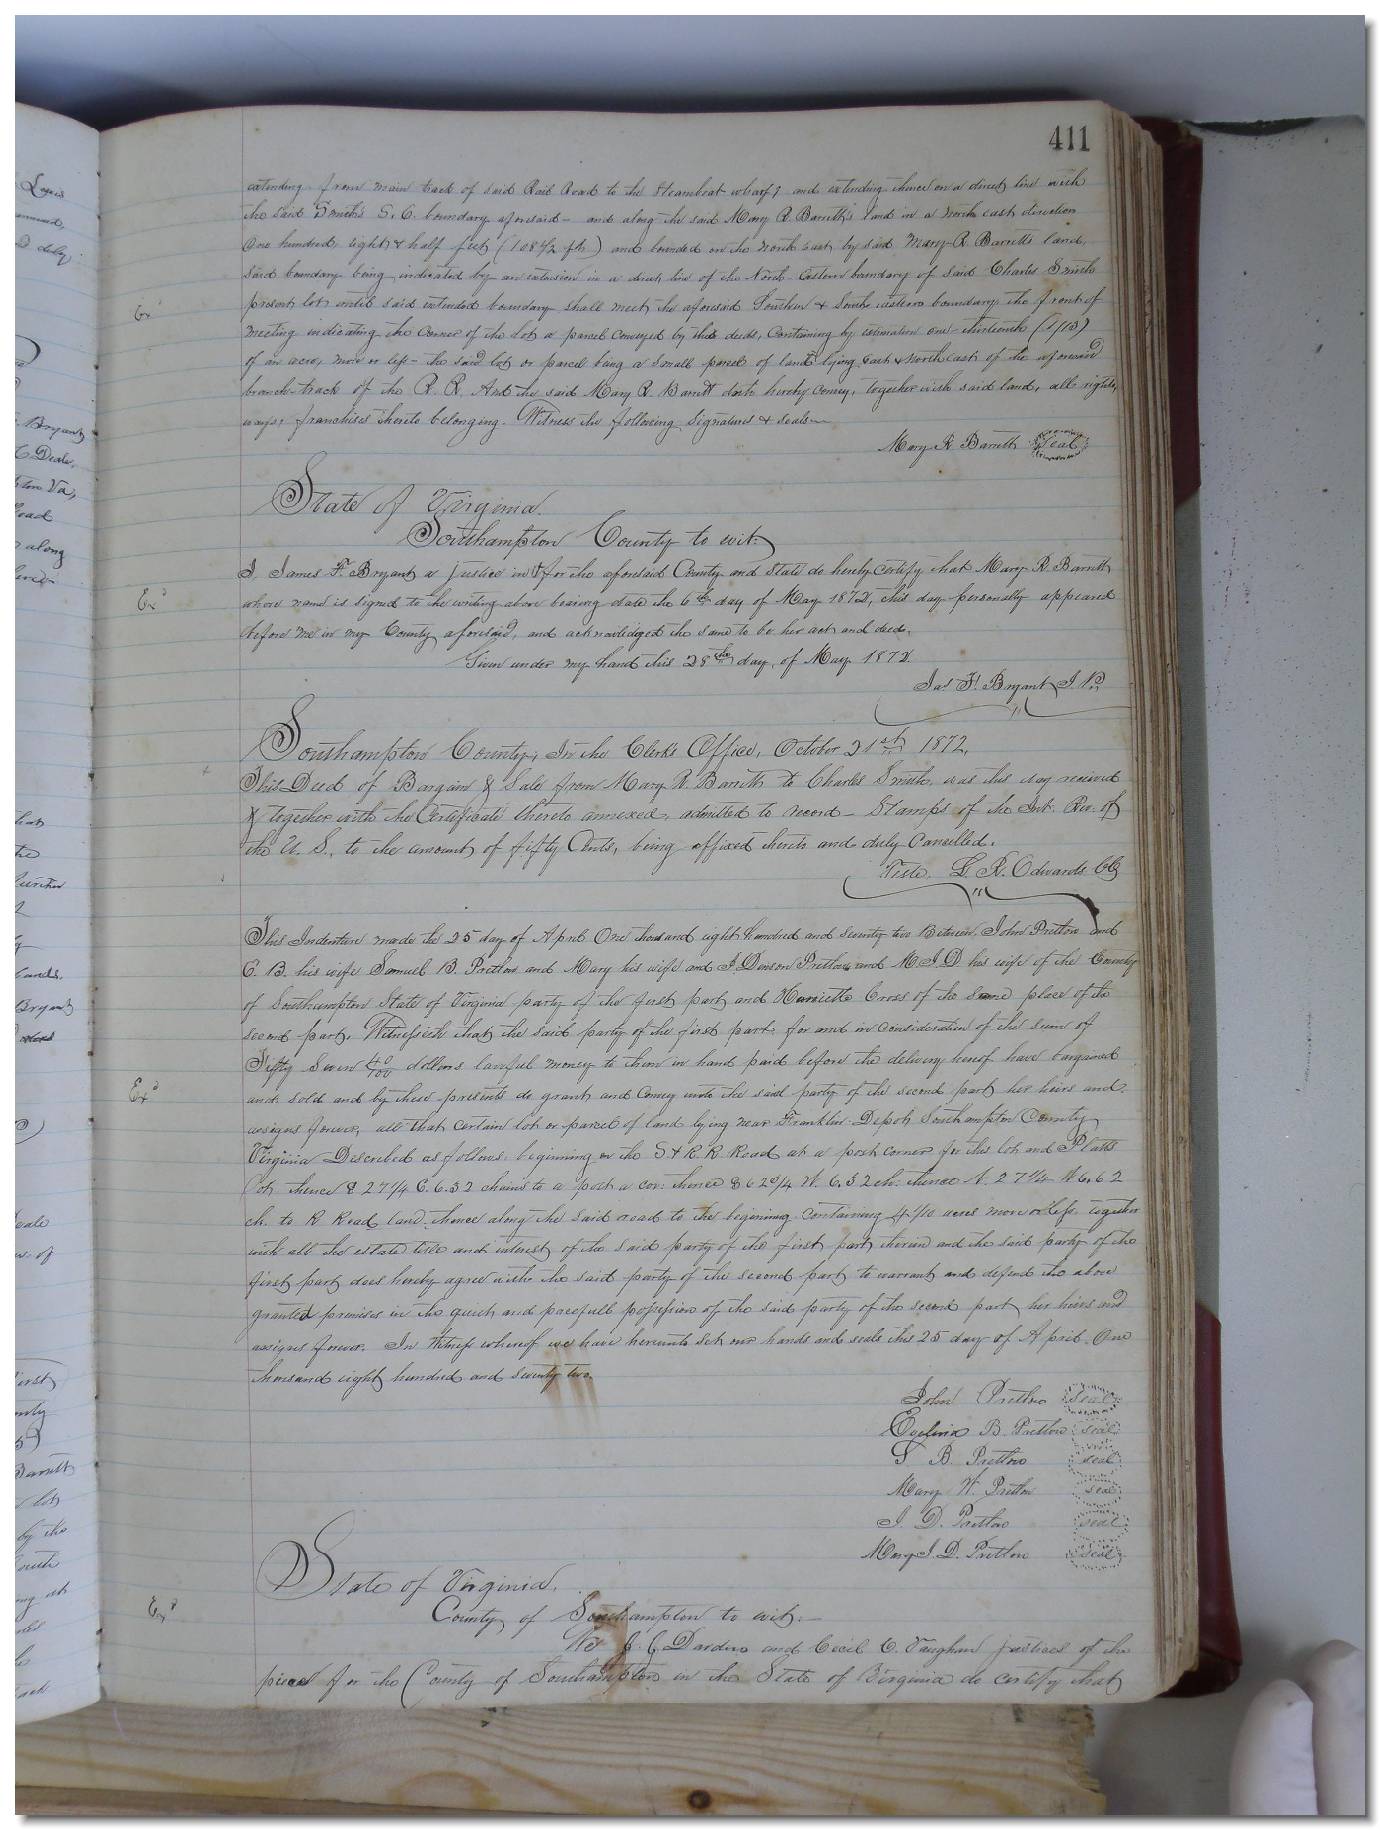 411
extending from main track of said Rail Road to the Steamboat wharf; and extending thence on a direct line with
the said Smith's S. E. boundary aforesaid - and along the said Mary R. Barrett's land in a North east direction
One hundred, eight & half feet (108 1/2 ft) and bounded on the North East by said Mary R. Barretts land,
said boundary being indicated by an extension in a direct line of the North-Eastern boundary of said Charles Smiths
present lot until said extended boundary shall meet the aforesaid Southern & South eastern boundary, the front of
meeting indicating the corner of the lot or parcel conveyed by this deed, Containing by estimation one-thirteenth (1/13)
of an acre, more or less - the said lot or parcel being a small parcel of land lying East & North east of the aforesaid
branch track of the R. R. And the said Mary R. Barrett doth hereby convey, together with said land, all rights,
ways, franchises thereto belonging. Witness the following signatures & seals
Mary R. Barrett Seal
State of Virginia
Southampton County to wit:
I, James F. Bryant a justice in & for the aforesaid County and State do hereby certify that Mary R. Barrett
whose name is signed to the writing above bearing date the 6th day of May 1872, this day personally appeared
before me in my County aforesaid, and acknowledged the same to be her act and deed.
Given under my hand this 28th day, of May 1872
Jas F. Bryant J. P.
Southampton County; In the Clerk's Office, October 21st 1872,
This Deed of Bargain & Sale from Mary R. Barrett to Charles Smith, was this day received
& together with the Certificate thereto annexed, admitted to record - Stamps of the Int. Rev. of
the U. S., to the amount of fifty Cents, being affixed thereto and duly Cancelled.
Teste. L. R. Edwards CC
This Indenture made the 25 day of April One thousand eight hundred and seventy two Between John Pretlow and
E. B. his wife Samuel B. Pretlow and Mary his wife and J. Denson Pretlow and M. J. D. his wife of the County
of Southampton State of Virginia party of the first part and Henrietta Cross of the Same place of the
second part, Witnesseth that the said party of the first part for and in consideration of the sum of
Fifty Seven 40/100 dollars lawful money to them in hand paid before the delivery hereof have bargained
and sold and by these presents do grant and convey unto the said party of the second part her heirs and
assigns forever, all that certain lot or parcel of land lying near Franklin Depot Southampton County
Virginia Described as follows: beginning on the S & R R Road at a post corner for this lot and Platts
lot thence S 27 1/4 E. 6.32 chains to a post a cor: thence S 62 3/4 W. 6.32 ch. thence N. 27 1/4 W 6.62
ch. to R Road land thence along the said road to the begining containing 4 1/10 acres more or less together
with all the estate title and interest of the said party of the first part therein and the said party of the
first part does hereby agree with the said party of the second part to warrant and defend the above
granted premises in the quiet and pacefull possession of the said party of the second part her heirs and
assigns forever. In Witness whereof we have hereunto set our hands and seals this 25 day of April One
thousand eight hundred and seventy two.
John Pretlow seal
Evelina B. Pretlow seal
S B. Pretlow seal
Mary W. Pretlow seal
J. D. Pretlow seal
Mary J. D. Pretlow seal
State of Virginia,
County of Southampton to wit:-
We J. J. Darden and Cecil C. Vaughan justices of the
peace for the County of Southampton in the State of Virginia do certify that